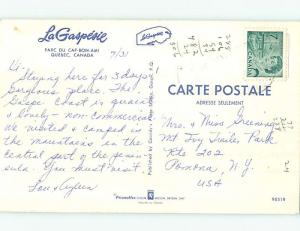 La Gaspésie
PARC DU CAP-BON-AMI
QUEBEC, CANADA
7/31
Hi - Staying here for 3 days
Gorgeous place. The
Gaspe Coast is quaint
& lovely - non-commercial
We rested & camped in
the mountains in the
central part of the penin-
sula. You must visit.
CARTE POSTALE
ADRESSE SEULEMENT
Mrs. & Miss Greening
Mt Ivy Trailer Park
Rte 202
Pomona, N.Y.
USA
CANADA
2
98519